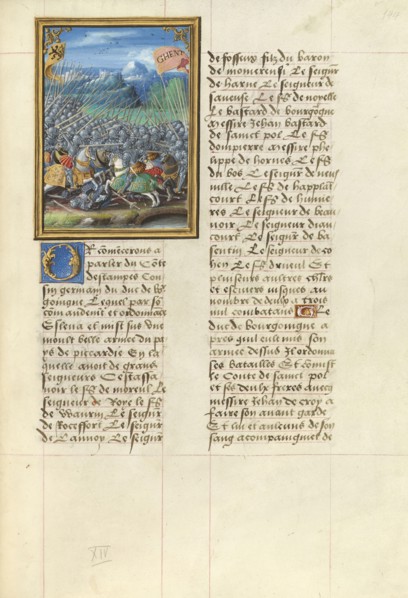 GHENT
Or comēcerons a
parler du Cōte
destampes Cou
sin germain du duc de bo
goingne Lequel par so
com audemt et ordonnāce
assena et mist sus une
moult belle armee du pa
ys de piccardie En la
quelle auoit de grans
seigneurs Cestassa
uoir le fs de moreul Le
seigneur de Roye le fs
de Waurin Le seignr
de Rocefort Le seignr
de Lannoy Le seignr
de fosseux filz du baron
de momerensi Le seignr
de harne Le seigneur de
saueuse Le fs de noyelle
Le bastard de bourgōgne
messire Jehan bastard
de sainct pol Le fs
dompierre messire phe
lippe de hornes Le fs
du bos Le seignr de neuf
uille Le fs de happlin
court Le fs de humie
res Le seigneur de beau
uoir Le seigneur diau
court Le seignr de ba
sentin Le seigneur de co
hen Le fs drueul Et
pluiseurs aultres chlrs
et escuiers iusques au
nombre de deux a trois
mil combatans Le
duc de bourgoingne a
pres quil eult mis son
armee dessus Il ordonna
ses batailles Et commist
le Conte de sainct pol
et ses deulx freres auecq
messire Jehan de croy a
faire son auant garde
Et lui et aulcuns de son
sang acompaigniet de
XIV